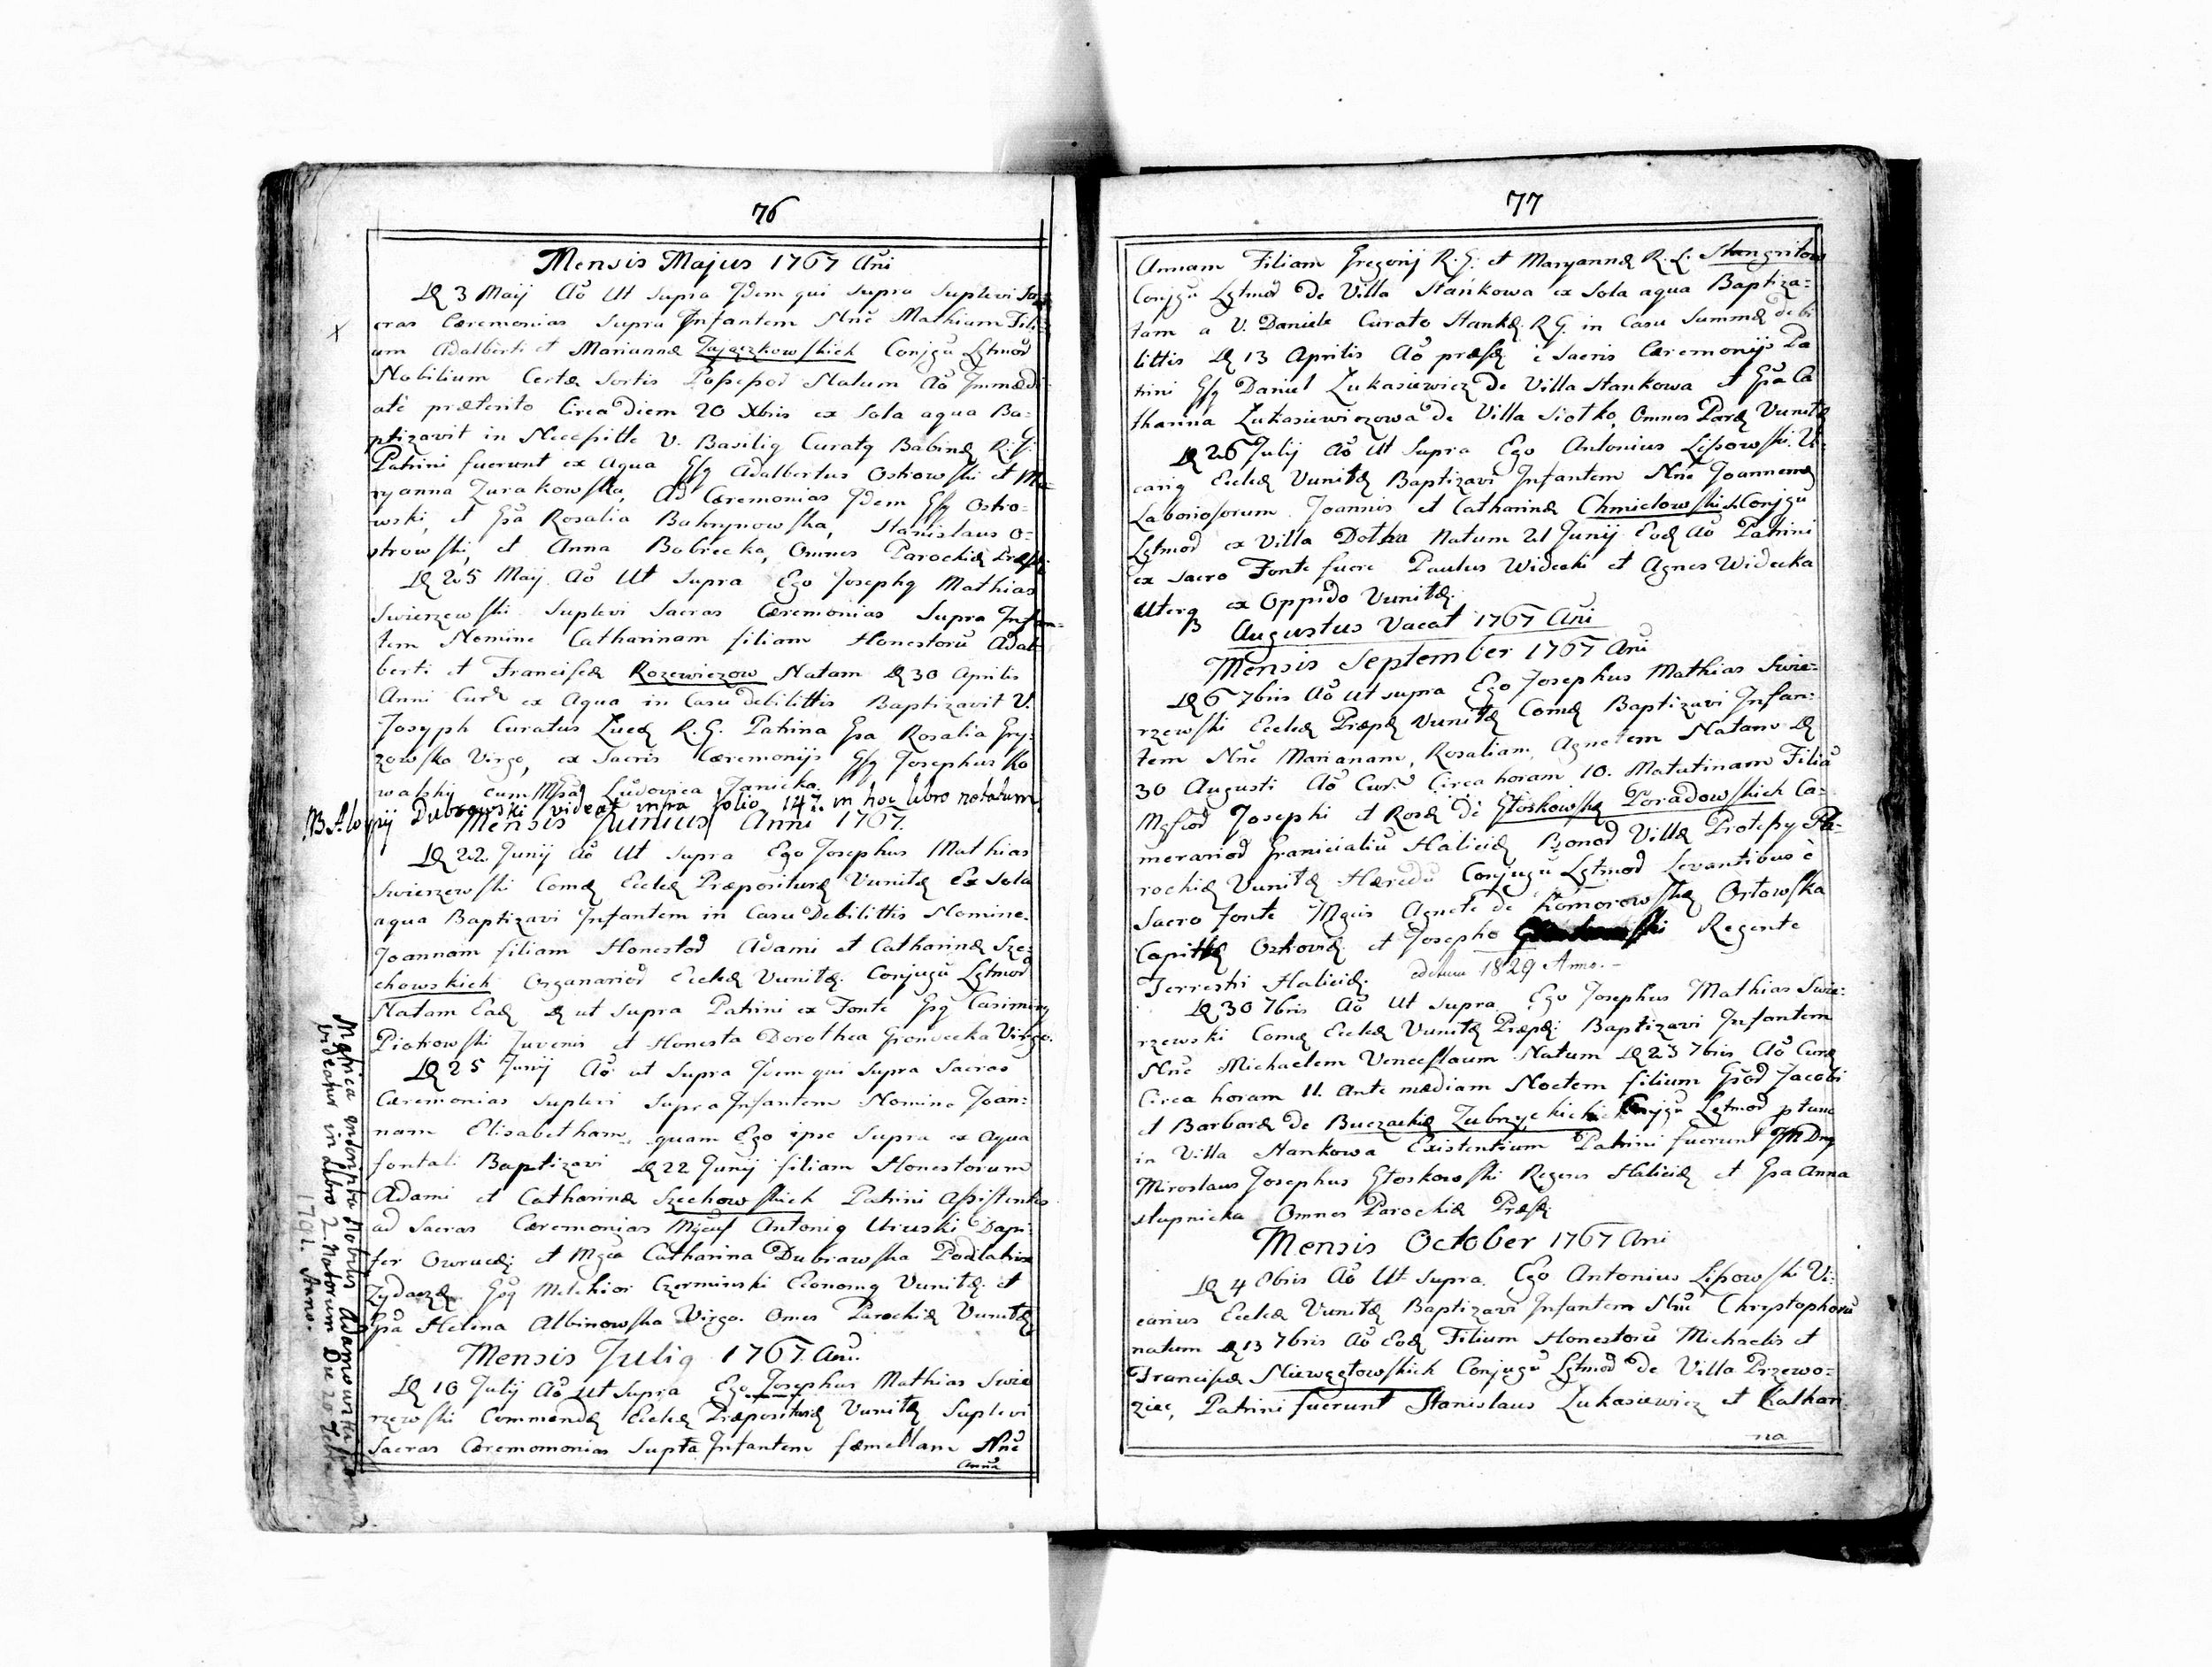 76
Mensis Majus 1767 Ani
D 3 Maij Ao Ut Supra Idem qui supra Suplevi Sa
cras Cæremonias Supra Infantem Nne Mathiam Fili
um Adalberti et Mariannæ Zajączkowskich Conjgu Lgtmod
Nobilium Certæ Sortis Possessod Natum Ao Immædi
atè præterito Circa Diem 20 Xbris ex Sola aqua Ba-
ptizavit in Necessitte V. Basilig Curatg Babinæ R. G.
Patrini fuerunt ex Aqua Gsg Adalbertus Ostrowski et Ma-
ryanna Zurakowska, Ad Cæremonias Idem Gsg Ostro-
wski, et Gsa Rosalia Bahrynowska, Stanislaus O-
strowski, et Anna Bobrecka, Omnes Parochiæ Præse
D 25 Maij Ao Ut Supra Ego Josephg Mathias
Swierzewski Suplevi Sacras Cæremonias Supra Infan-
tem Nomine Catharinam filiam Honestorú Adal-
berti et Franciscæ Rozewiczow Natam D 30 Aprilis
Anni Cur ex Aqua in Casu debilittis Baptizavit V.
Josyph Curatus R. G. Patrina Gsa Rosalia Gry-
zowska Virgo, ex Sacris Cæremonijs Gsg Josephus Ko
walski cum Mgsa Ludovica Janicka.
NB Aloysij Dubrawski videat infra folio 147. in hoc libro notatum
Mensis Junius Anni 1767.
D 22. Junij Ao Ut Supra Ego Josephus Mathias
Swierzewski Comæ Eccleæ Præpositure Vunitæ Ex Sola
aqua Baptizavi Infantem in Casu Debilittis Nomine.
Joannam filiam Honestod Adami et Catharinæ Sze-
chowskich Organariod Eccleæ Vunitæ. Conjugu Lgtmod
Natam Eaд D ut Supra Patrini ex Fonte Gsg Casimirg
Piotrowski Juvenis et Honesta Dorothea Virgo.
D 25 Junij Ao ut Supra Idem qui Supra Sacras
Cæremonias Suplevi Supra Infantem Nomine Joan-
nam Elisabetham, quam Ego ipse Supra ex aqua
fontali Baptizavi D 22 Junij filiam Honestorum
Adami et Catharinæ Szechowskich Patrini Assistentes
ad Sacras Cæremonias Antonig Uruski Dapi-
fer Owruc et Mgca Catharina Dubrawska Podstalina
Zydacz Gsg Melchior Czerminski Economg Vunitæ. et
Gsa Helena Albinowska Virgo. Omes Parochiæ Vunitæ
Mensis Julig 1767 Ani.
D 10 July Ao Ut Supra Ego Josephus Mathias Swie
rzewski Commendæ Eccleæ Præpositure Vunitæ Suplevi
Sacras Cæremomonias Supra Infantem fæmellam Nne
Anna
Mgnica Nobilis
videatur in Libro 2. Natorum Die 20
1791. Anno.
77
Annam Filiam Gregorij R. G. et Maryannæ R. L. Stangritow
Conjgu Lgtmod De Villa Stańkowa ex Sola aqua Baptiza-
tam a V. Daniele Curato Stankæ. R G. in Casu Summæ debi
littis D 13 Aprilis Ao præse è Sacris Cæremonijs Pa
trini Gsg Daniel Zukasiewicz de Villa Stankowa et Gsa Ca
tharina Zukasiewiczowa de Villa Siołko, Omnes Paræ Vunitæ
D 26 Julij Ao Ut Supra Ego Antonius Lisowski Vi-
carig Eccleæ Vunitæ Baptizavi Infantem Nne Joannem
Laboriosorum Joannis et Catharinæ Chmielowskich Conjgu
Lgtmod ex Villa Dołha Natum 21 Junij Eoд Ao Patrini
ex Sacro Fonte fuere Paulus Widecki et Agnes Widecka
Uterq ex Oppido Vunitæ.
Augustus Vacat 1767 Ani
Mensis September 1767 Ani
D 6 7bris Ao Ut supra Ego Josephus Mathias Swie-
rzewski Eccleæ Præpæ Vunitæ Comæ Baptizavi Infan-
tem Nne Mariannam, Rosaliam, Agnetem Natam D
30 Augusti Ao Cur Circa horam 10. Matutinam Filiā
Mgficod Josephi et Rosæ de Głoskowskæ Poradowskich Ca-
merariod Granicialiu Haliciæ Bonod Villæ Protesy Pa-
rochiæ Vunitæ Hæredu Conjugu Lgtmod Levantibus è
Sacro fonte Mgcis Agnete de Komorowskæ Orłowska
et Josepho Regente
Terrestri Haliciæ. 1829 Anno.
D 30 7bris Ao Ut Supra Ego Josephus Mathias Swie-
rzewski Comæ Eccleæ Vunitæ Præpæ Baptizavi Infantem
Nne Michaelem Venceslaum Natum D 23 7bris Ao Curæ
Circa horam 11. Ante mædiam Noctem filium Gsod Jacobi
et Barbaræ de Buczackiæ Zubrzyckich Conjgu Lgtmod ptunc
in Villa Stankowa Existentium Patrini fuerunt
Miroslaus Josephus Głoskowski Regens Haliciæ et Gsa Anna
Słupnicka Omnes Parochiæ Præse
Mensis October 1767 Ani
D 4 8bris Ao Ut Supra Ego Antonius Lisowski Vi-
carius Eccleæ Vunitæ Baptizavi Infantem Nne Chrystophorú
natum D 13 7bris Ao Eoд Filium Honestorú Michaelis et
Franciscæ Niewęgłowskich Conjugu Lgtmod de Villa Przewo-
ziec, Patrini fuerunt Stanislaus Zukasiewicz et Kathari-
na